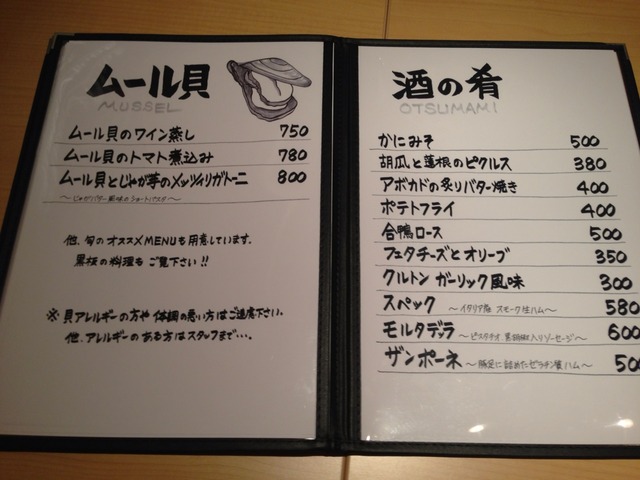 ムール貝
MUSSEL
ムール貝のワイン蒸し 750
ムール貝のトマト煮込み 780
ムール貝とじゃが芋のメッツィリガトーニ 800
他、旬のオススメMENUも用意しています。
黒板の料理もご覧下さい!!
※貝アレルギーの方や体調の悪い方はご遠慮下さい。
他、アレルギーのある方はスタッフまで…。
酒の肴
OTSUMAMI
かにみそ 500
胡瓜と蓮根のピクルス 380
アボカドの炙りバター焼き 400
ポテトフライ 400
合鴨ロース 500
フェタチーズとオリーブ 350
クルトン ガーリック風味 300
スペック ～イタリア産 スモーク生ハム～ 580
モルタデッラ ～ピスタチオ 黒胡椒入りソーセージ～ 600
ザンポーネ ～豚足に詰めたゼラチン質ハム～